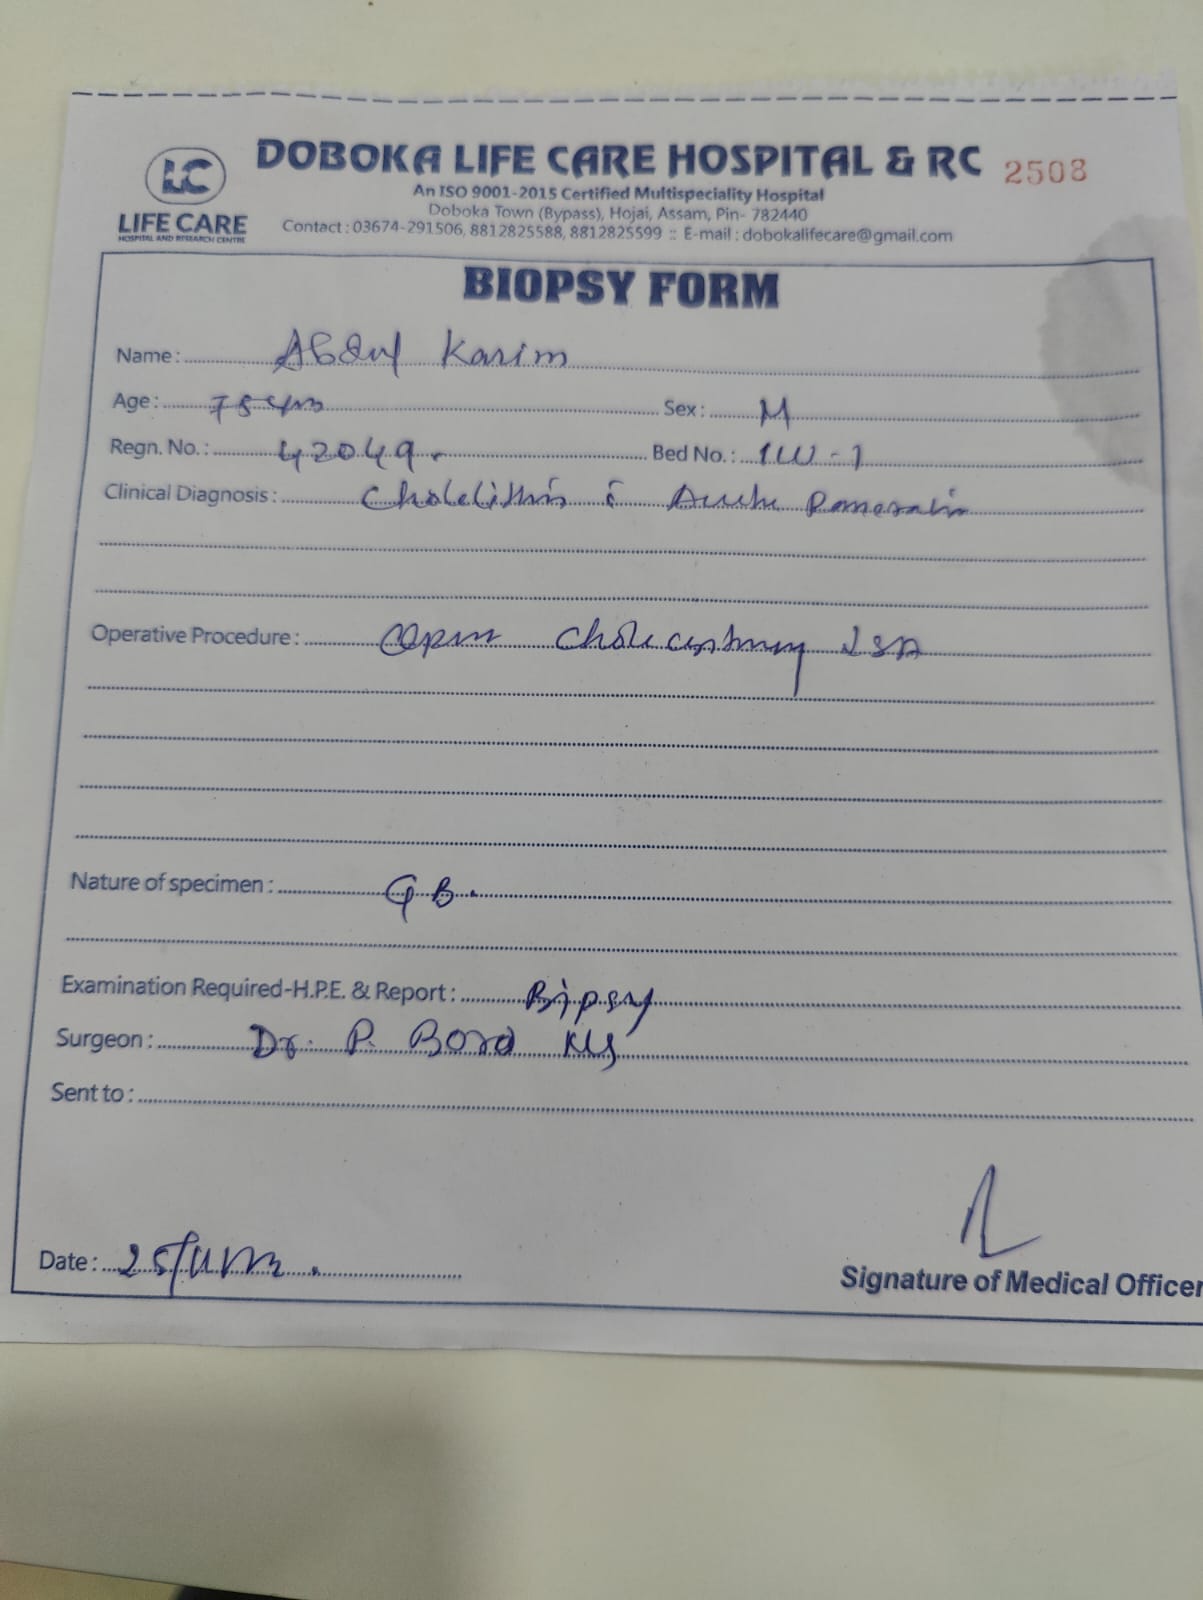 DOBOKA LIFE CARE HOSPITAL & RC 2508
LC
LIFE CARE
HOSPITAL AND RESEARCH CENTRE
An ISO 9001-2015 Certified Multispeciality Hospital
Doboka Town (Bypass), Hojai, Assam, Pin- 782440
Contact : 03674-291506, 8812825588, 8812825599 :: E-mail : dobokalifecare@gmail.com
BIOPSY FORM
Name : Abdul Karim
Age : 75 yrs Sex : M
Regn. No. : 42049. Bed No. :
Clinical Diagnosis : Cholelithis c̄ Acute
Operative Procedure : Open
Nature of specimen : GB.
Examination Required-H.P.E. & Report : Bipsy
Surgeon : Dr. P. Bora
Sent to :
Date :
Signature of Medical Officer